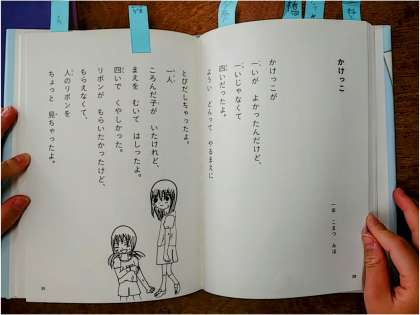 かけっこ
一年 こまつ みほ
かけっこが
一いが よかったんだけど、
一いじゃなくて
四いだったよ。
ようい どんって やるまえに
とびだしちゃったよ。
一人
ころんだ子が いたけれど、
まえを むいて はしったよ。
四いで くやしかった。
リボンが もらいたかったけど、
もらえなくて、
人のリボンを
ちょっと 見ちゃったよ。